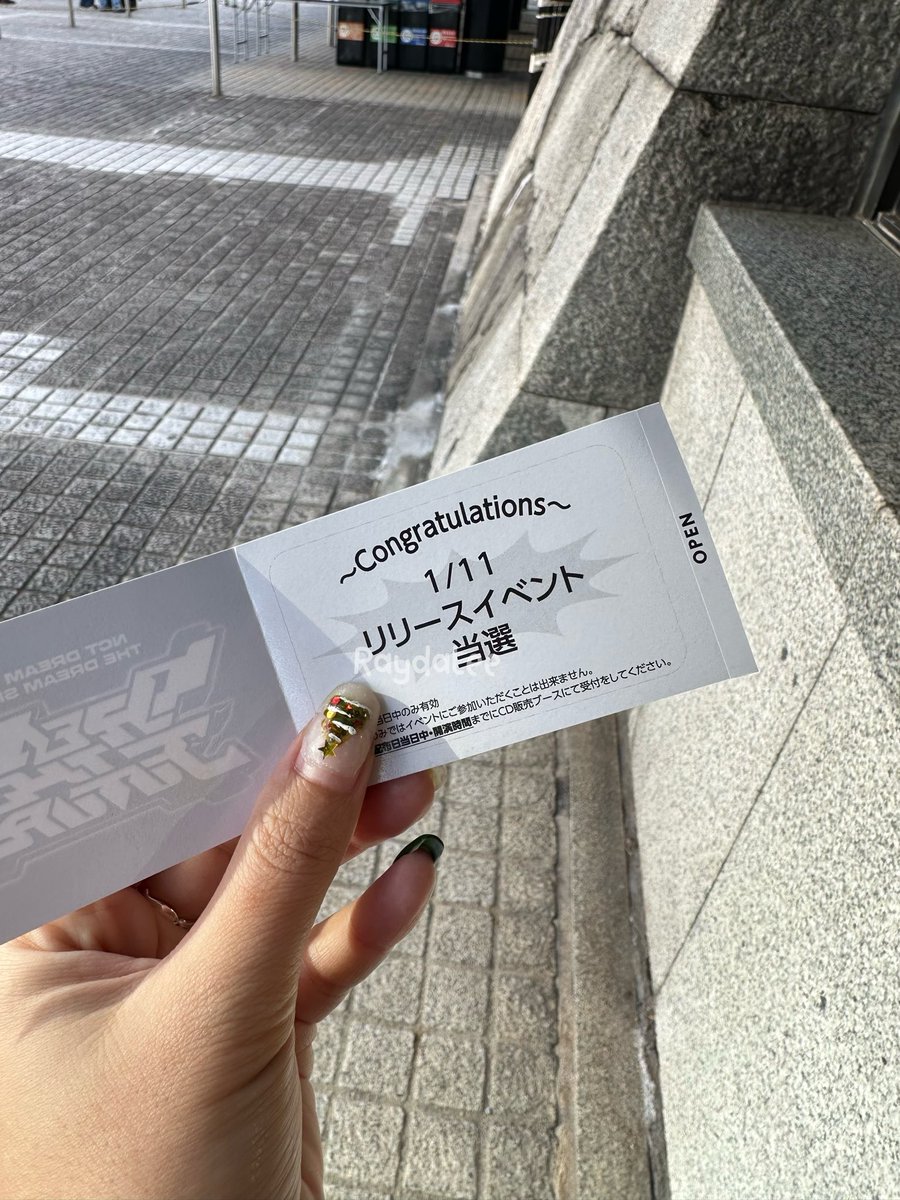 ~Congratulations~
1/11
リリースイベント
当選
当日中のみ有効
みではイベントにご参加いただくことは出来ません。
日当日中・開演時間までにCD販売ブースにて受付をしてください。
OPEN
NOT DREAM
THE DREAM S